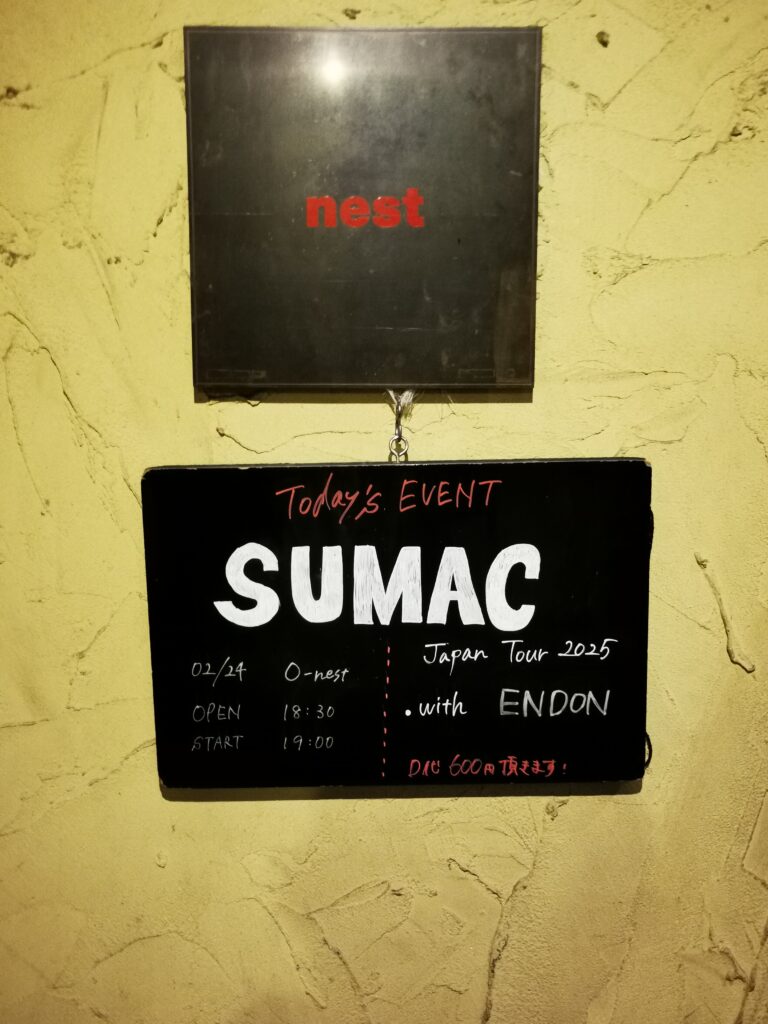 nest
Today's EVENT
SUMAC
02/24 O-nest
OPEN 18:30
START 19:00
Japan Tour 2025
・with ENDON
D代 600円 頂きます!